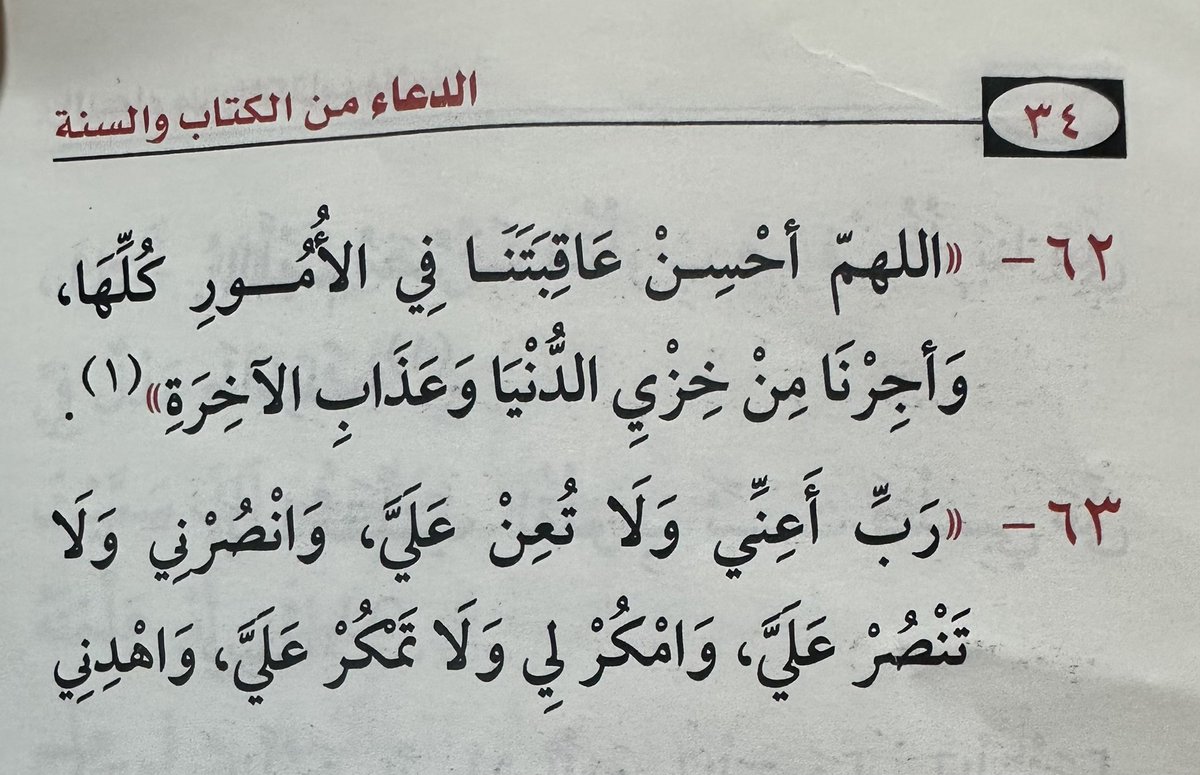 ٣٤
الدعاء من الكتاب والسنة
٦٢ - «اللهمّ أحْسِنْ عَاقِبَتَنَا فِي الأُمُورِ كُلِّهَا،
وَأجِرْنَا مِنْ خِزْيِ الدُّنْيَا وَعَذَابِ الآخِرَةِ»(١).
٦٣ - «رَبِّ أَعِنِّي وَلَا تُعِنْ عَلَيَّ، وَانْصُرْنِي وَلَا
تَنْصُرْ عَلَيَّ، وَامْكُرْ لِي وَلَا تَمْكُرْ عَلَيَّ، وَاهْدِنِي